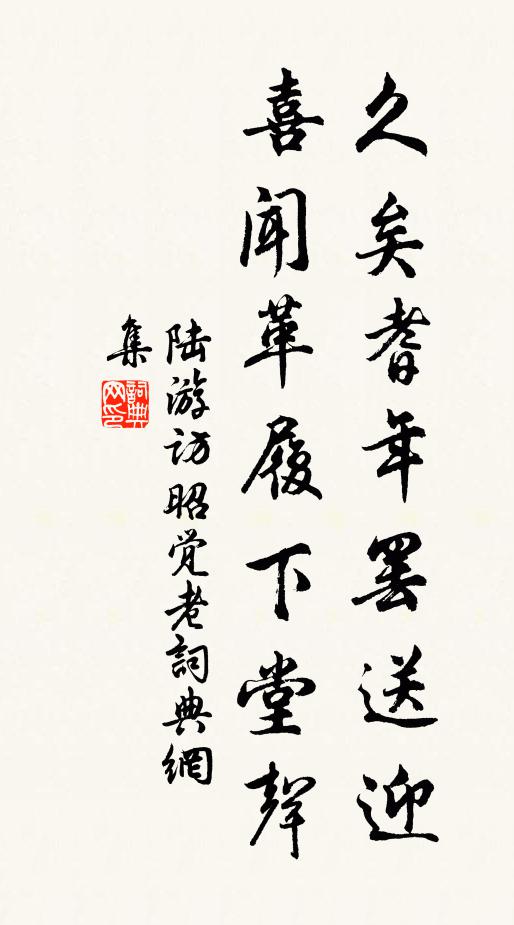 久矣耆年罢送迎
喜闻革履下堂聲
陆游访昭觉老詞典網
集
詞典网印